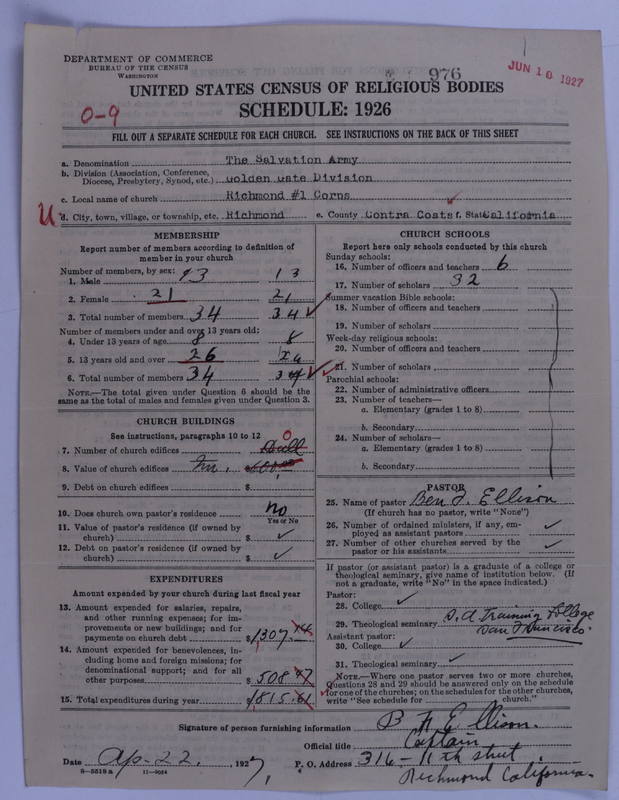 DEPARTMENT OF COMMERCE
BUREAU OF THE CENSUS
WASHINGTON
976
JUN 10 1927
UNITED STATES CENSUS OF RELIGIOUS BODIES
SCHEDULE: 1926
0-9
FILL OUT A SEPARATE SCHEDULE FOR EACH CHURCH. SEE INSTRUCTIONS ON THE BACK OF THIS SHEET
a. Denomination The Salvation Army
b. Division (Association, Conference, Diocese, Presbytery, Synod, etc.) Golden Gate Division
c. Local name of church Richmond #1 Corps
d. City, town, village, or township, etc. Richmond e. County Contra Costa f. State California
MEMBERSHIP
Report number of members according to definition of
member in your church
Number of members, by sex:
1. Male 13 13
2. Female 21 21
3. Total number of members 34 34
Number of members under and over 13 years old:
4. Under 13 years of age 8 8
5. 13 years old and over 26 26
6. Total number of members 34 34
NOTE.—The total given under Question 6 should be the
same as the total of males and females given under Question 3.
CHURCH BUILDINGS
See instructions, paragraphs 10 to 12
7. Number of church edifices 0
8. Value of church edifices
9. Debt on church edifices $
10. Does church own pastor's residence? No
Yes or No
11. Value of pastor's residence (if owned by
church) $
12. Debt on pastor's residence (if owned by
church) $
EXPENDITURES
Amount expended by your church during last fiscal year
13. Amount expended for salaries, repairs,
and other running expenses; for im-
provements or new buildings; and for
payments on church debt $1307.14
14. Amount expended for benevolences, in-
cluding home and foreign missions; for
denominational support; and for all
other purposes $508.47
15. Total expenditures during year $1815.61
CHURCH SCHOOLS
Report here only schools conducted by this church
Sunday schools:
16. Number of officers and teachers 6
17. Number of scholars 32
Summer vacation Bible schools:
18. Number of officers and teachers
19. Number of scholars
Week-day religious schools:
20. Number of officers and teachers
21. Number of scholars
Parochial schools:
22. Number of administrative officers
23. Number of teachers—
a. Elementary (grades 1 to 8)
b. Secondary
24. Number of scholars—
a. Elementary (grades 1 to 8)
b. Secondary
PASTOR
25. Name of pastor Ben F. Ellison
(If church has no pastor, write "None")
26. Number of ordained ministers, if any, em-
ployed as assistant pastors
27. Number of other churches served by the
pastor or his assistants
If pastor (or assistant pastor) is a graduate of a college or
theological seminary, give name of institution below. (If
not a graduate, write "No" in the space indicated.)
Pastor:
28. College
29. Theological seminary S.A Training College
San Francisco.
Assistant pastor:
30. College
31. Theological seminary
NOTE.—Where one pastor serves two or more churches,
Questions 28 and 29 should be answered only on the schedule
for one of the churches; on the schedules for the other churches,
write "See schedule for church."
Signature of person furnishing information B F Ellison.
Official title Captain
Date Ap. 22, 1927. P. O. Address 316-11th street,
8-5518a 11-9024
Richmond California.